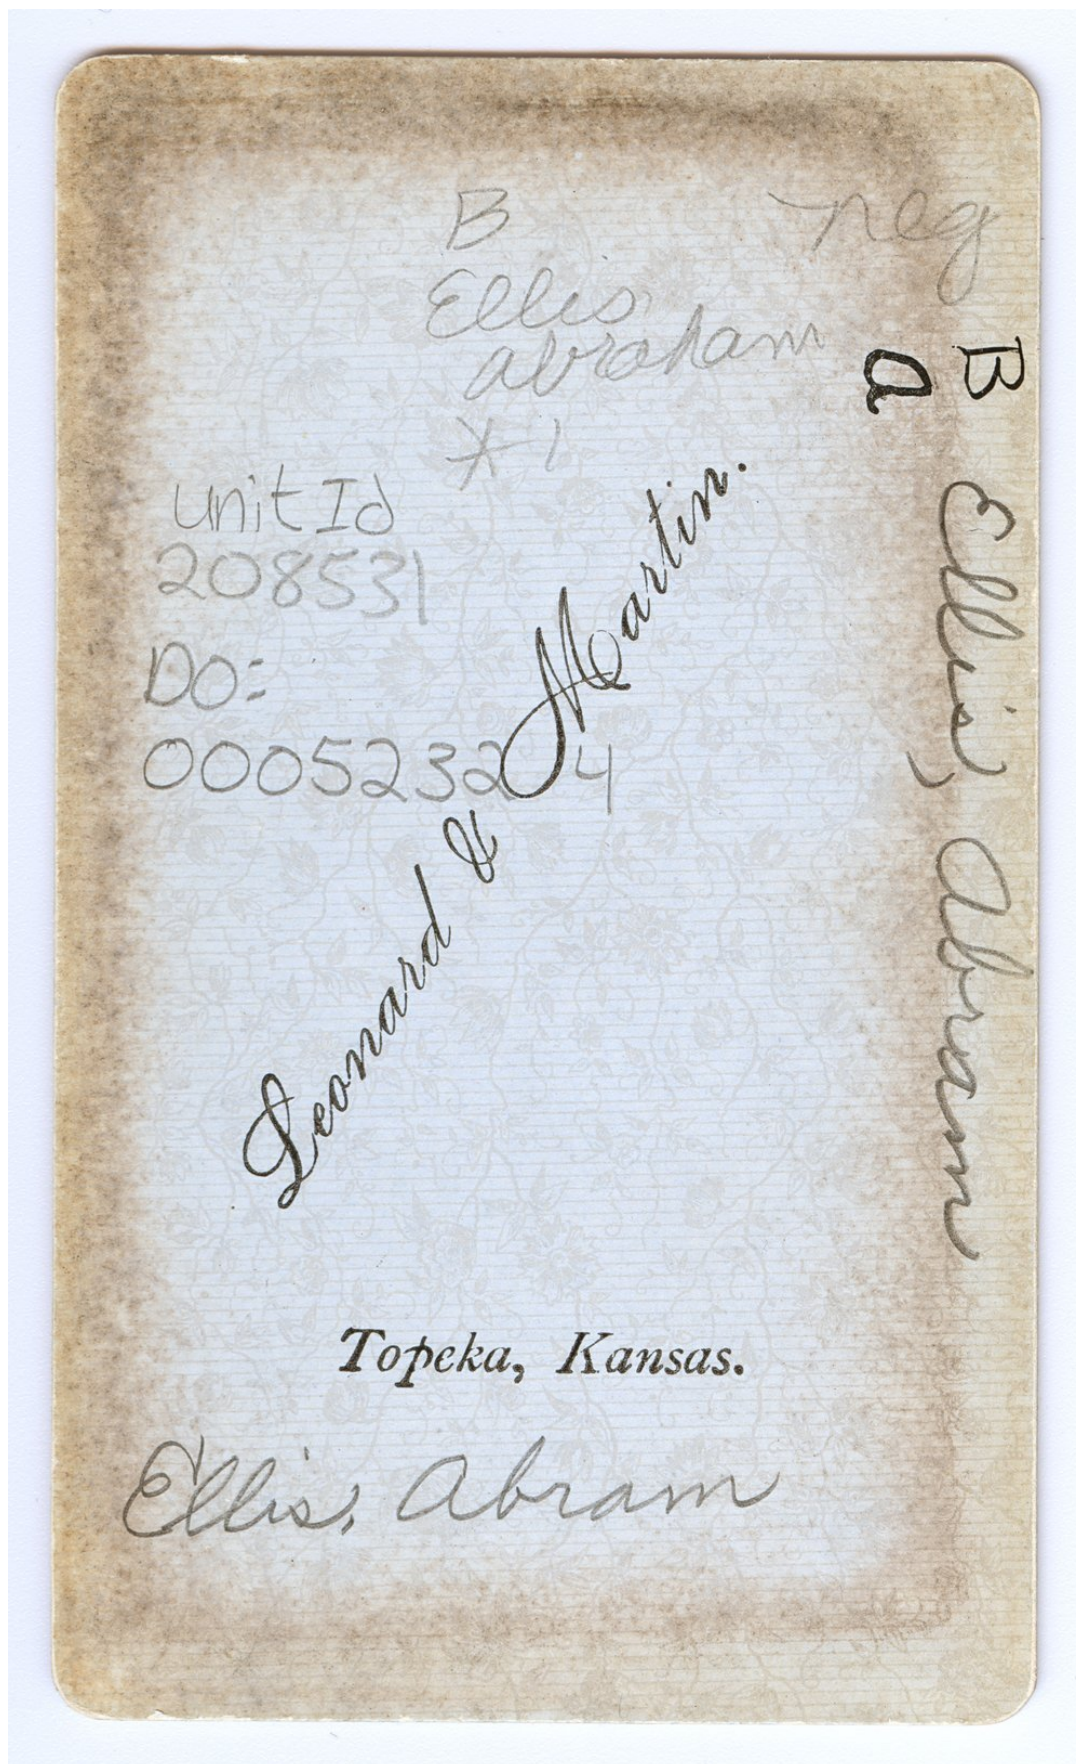 neg
B
Ellis,
abraham
* 1
B
a
Ellis, Abram
Unit Id
208531
DO:
00052324
Leonard & Martin.
Topeka, Kansas.
Ellis, Abram